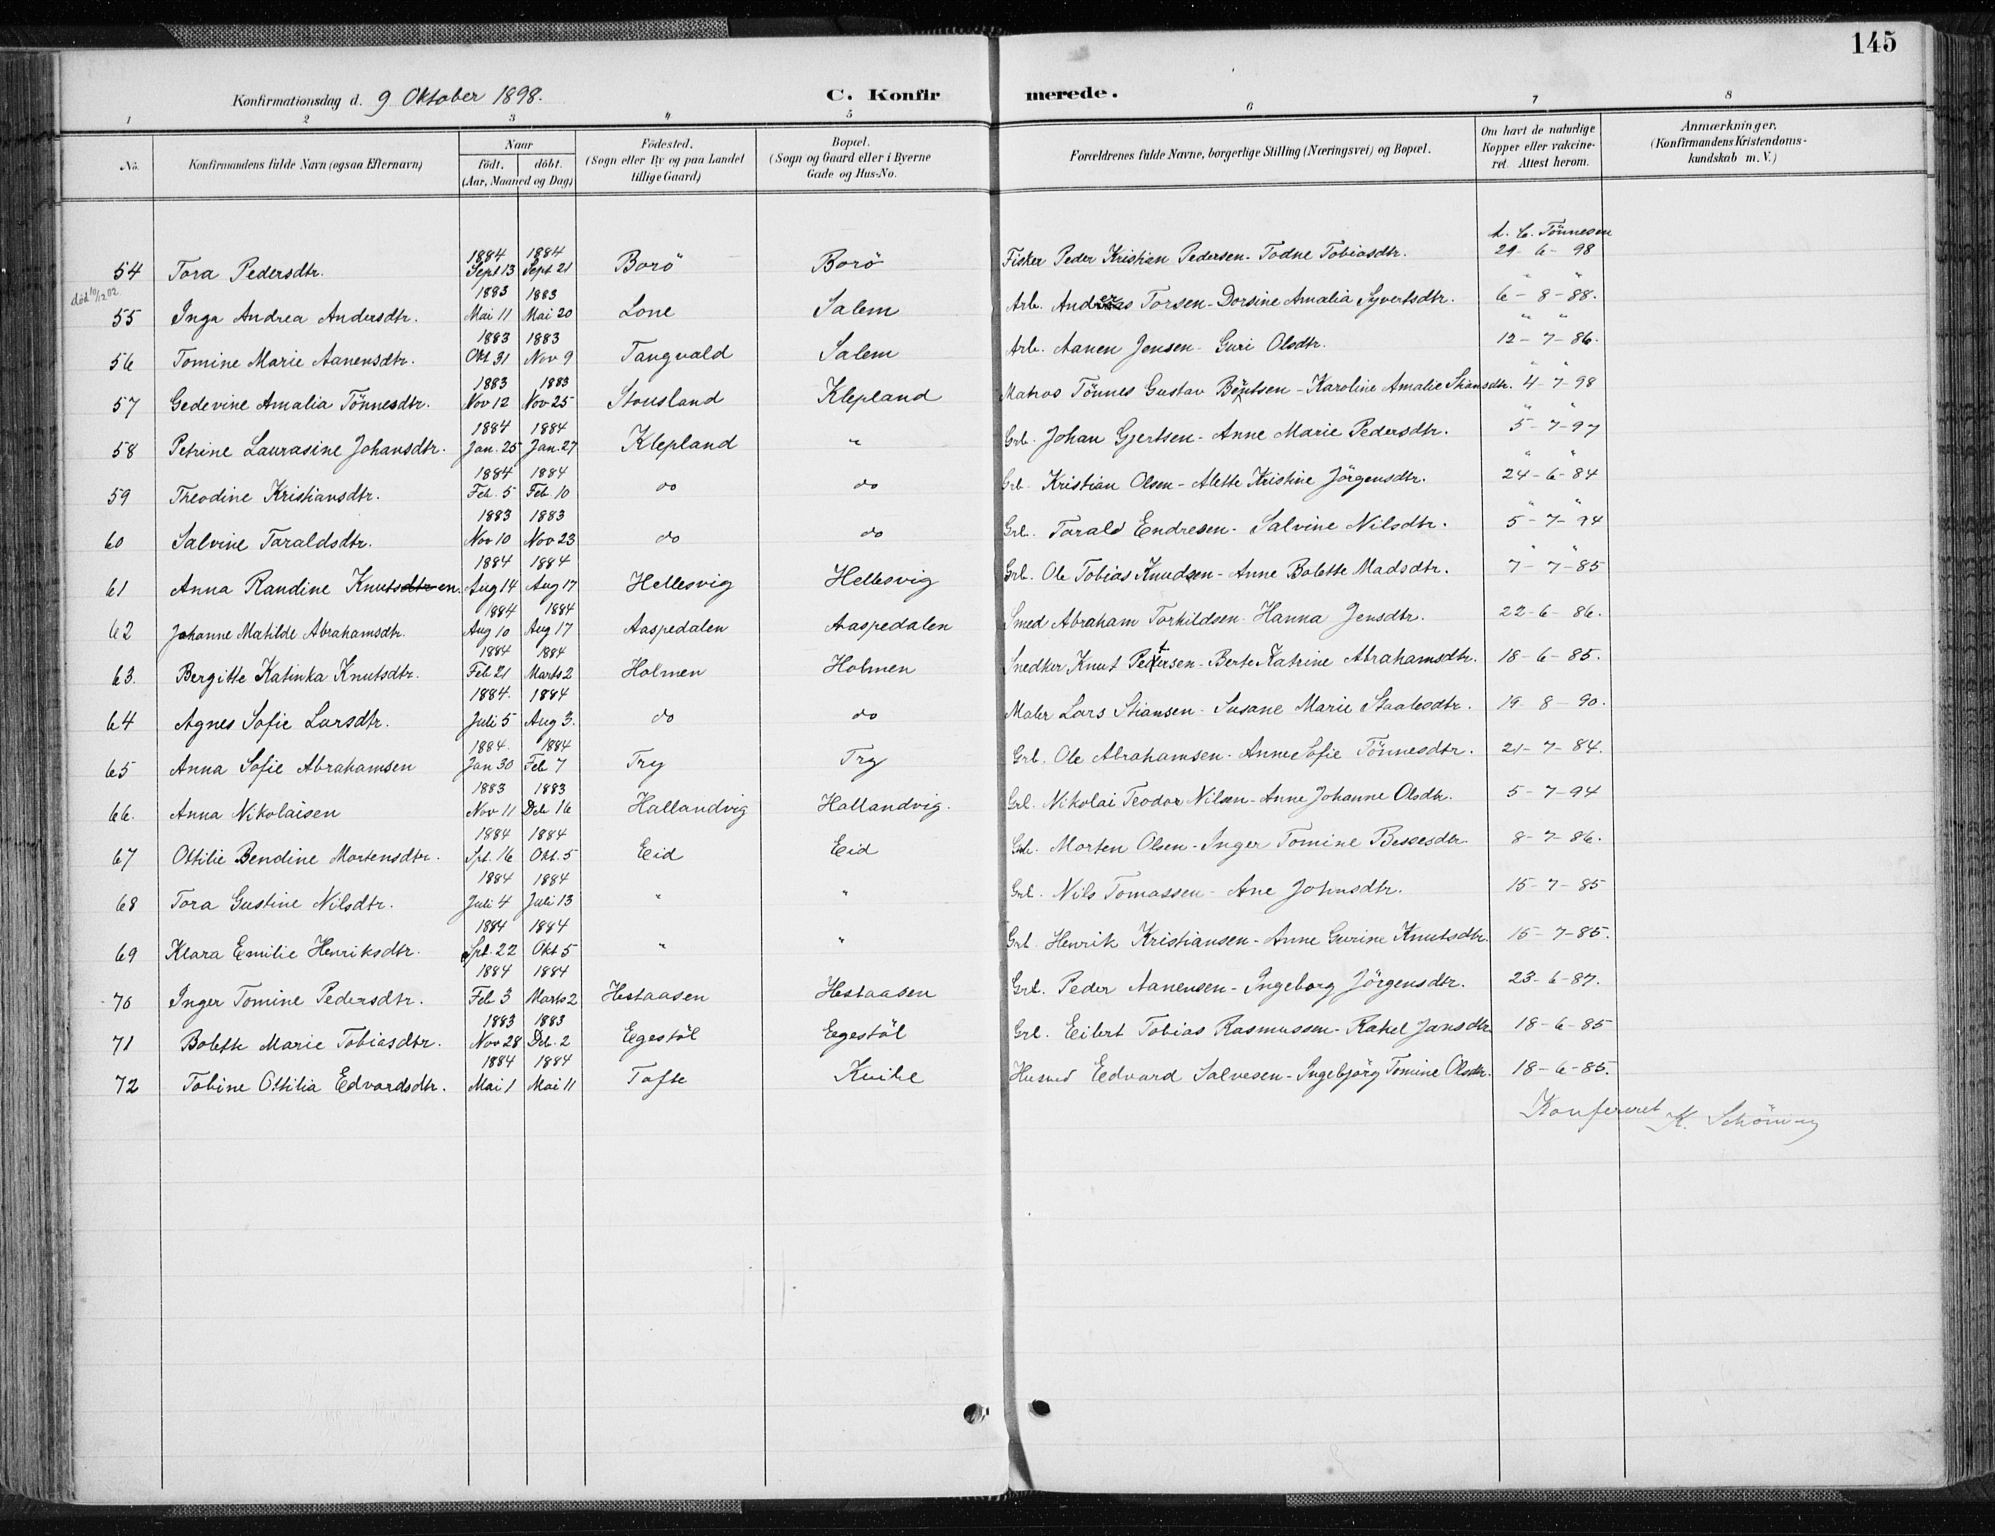 145
Konfirmationsdag d. 9 Oktober 1898.
C. Konfirmerede.
1 2 3 4 5 6 7 8
No. | Konfirmandens fulde Navn (ogsaa Efternavn) | Naar födt. döbt. (Aar, Maaned og Dag) | Födested. (Sogn eller By og paa Landet tillige Gaard) | Bopæl. (Sogn og Gaard eller i Byerne Gade og Hus-No. | Forældrenes fulde Navne, borgerlige Stilling (Næringsvei) og Bopæl. | Om havt de naturlige Kopper eller vakcineret. Attest herom. | Anmærkninger. (Konfirmandens Kristendomskundskab m. V.)
54 Tora Pedersdtr. 1884 Sept 13 1884 Sept 21 Borö Borö Fisker Peder Kristian Pedersen - Todne Tobiasdtr. Tönnesen 29-6-98
död 10/12 02
55 Inga Andrea Andersdtr. 1883 Mai 11 1883 Mai 20 Lone Salem Arb. Anders Torsen - Dorsine Amalia Syvertsdtr. " " 6-8-88.
56 Tomine Marie Aanensdtr. 1883 Okt 31 1883 Nov 9 Tangvald Salem Arb. Aanen Jensen - Guri Olsdtr. " " 12-7-86.
57 Gedevine Amalia Tönnesdtr. 1883 Nov 12 1883 Nov 25 Stousland Klepland Matros Tönnes Gustav Bentsen - Karoline Amalie Stiansdtr. " " 4-7-98
58 Petrine Laurasine Johansdtr. 1884 Jan. 25 1884 Jan. 27 Klepland " Grb. Johan Gjertsen - Anne Marie Pedersdtr. " " 5-7-97
59 Theodine Kristiansdtr. 1884 Feb. 5 1884 Feb. 10 do do Grb. Kristian Olsen - Alette Kristine Jörgensdtr. " " 24-6-84
60 Salvine Taraldsdtr. 1883 Nov 10 1883 Nov 23 do do Grb. Tarald Endresen - Salvine Nilsdtr. " " 5-7-94
61 Anna Randine Knutsdtr en. 1884 Aug 14 1884 Aug 17 Hellesvig Hellesvig Grb. Ole Tobias Knudsen - Anne Bolette Madsdtr. " " 7-7-85
62 Johanne Matilde Abrahamsdtr. 1884 Aug 10 1884 Aug 17 Aaspedalen Aaspedalen Smed Abraham Torkildsen - Hanna Jensdtr. 22-6-86.
63. Bergitte Katinka Knutsdtr. 1884 Feb 21 1884 Marts 2 Holmen Holmen Snedker Knut Petersen - Berte Katrine Abrahamsdtr. 18-6-85.
64 Agnes Sofie Larsdtr. 1884. Juli 5 1884 Aug 3. do do Maler Lars Stiansen - Susane Marie Staalesdtr. 19-8-90.
65 Anna Sofie Abrahamsen 1884. Jan 30 1884 Feb 7 Try Try Grb. Ole Abrahamsen - Anne Sofie Tönnesdtr. 21-7-84.
66. Anna Nikolaisen 1883 Nov 11 1883 Deb 16 Hallandvig Hallandvig. Grb. Nikolai Teodor Nilsen - Anne Johanne Olsdtr. 5-7-94
67 Ottilie Bendine Mortensdtr. 1884 Spt. 16 1884 Okt. 5 Eid Eid Grb. Morten Olsen - Inger Tomine Bessesdtr. 8-7-86.
68 Tora Gustine Nilsdtr. 1884 Juli 4 1884 Juli 13 " " Grb. Nils Tomassen - Ane Johnsdtr. 15-7-85
69 Klara Emilie Henriksdtr. 1884 Spt. 22 1884 Okt 5 " " Grb. Henrik Kristiansen - Anne Gurine Knutsdtr. 15-7-85.
70 Inger Tomine Pedersdtr. 1884 Feb 3 1884 Marts 2 Hestaasen Hestaasen Grb. Peder Aanensen - Ingeborg Jörgensdtr. 23-6-87.
71 Bolette Marie Tobiasdtr. 1883 Nov 28 1883 Deb. 2 Egestöl Egestöl Grb. Eilert Tobias Rasmussen - Rakel Jansdtr 18-6-85
72 Tobine Ottilia Edvardsdtr. 1884 Mai 1 1884 Mai 11 Tofte Edvard Salvesen - Ingebjörg Tomine Olsdtr. 18-6-85.
Konfereret K. Schöning